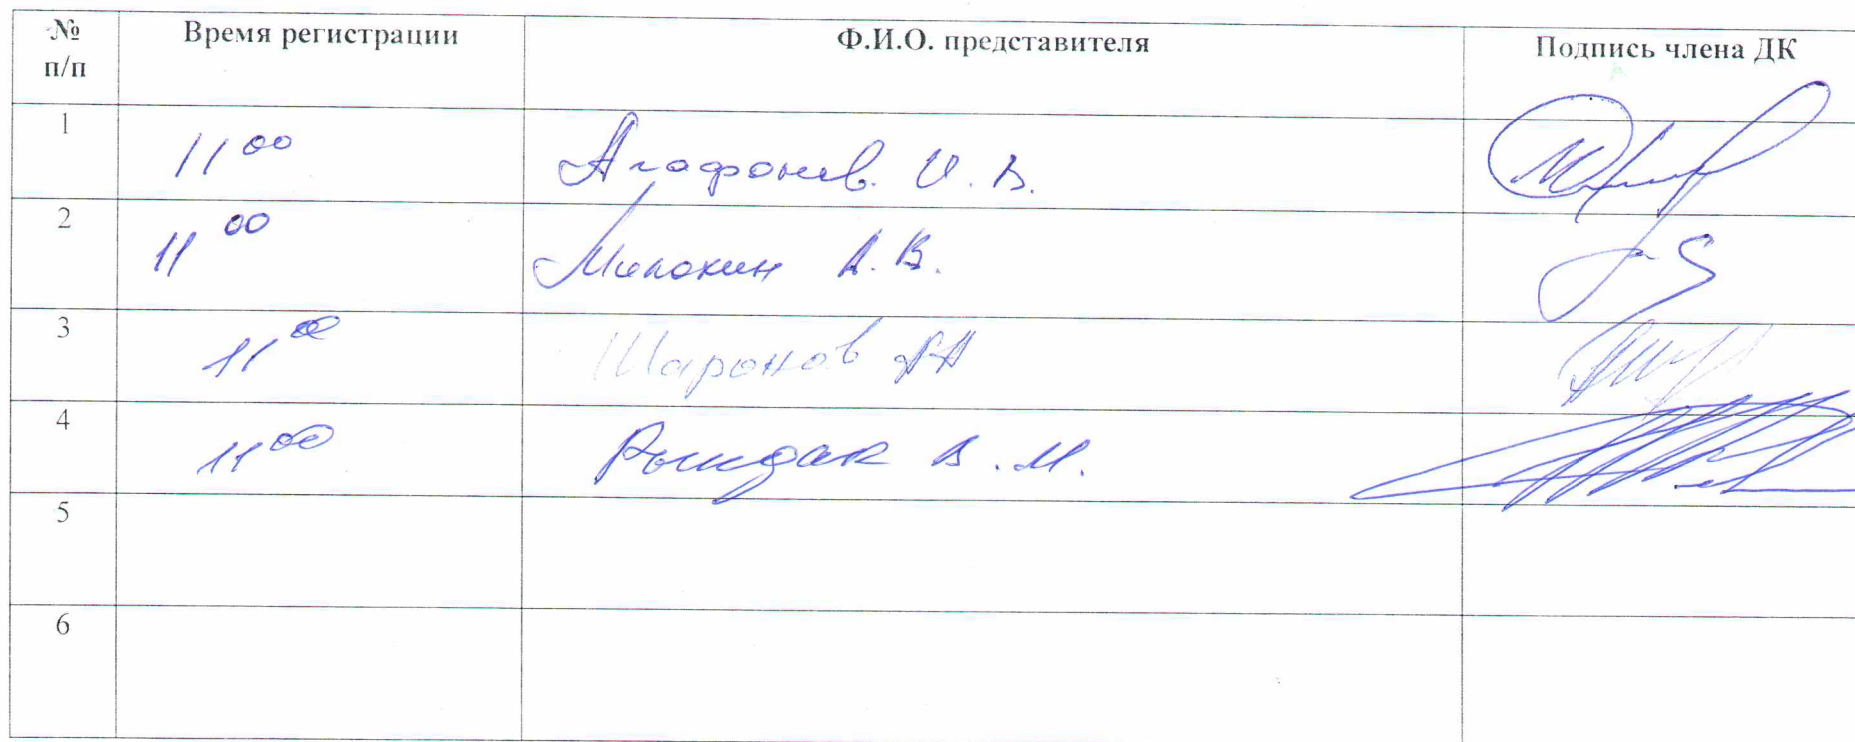 № п/п Время регистрации Ф.И.О. представителя Подпись члена ДК
1 11 00 Агафонов. И. В.
2 11 00 Милохин А. В.
3 11 00 Шаронов
4 11 00 В. М.
5
6